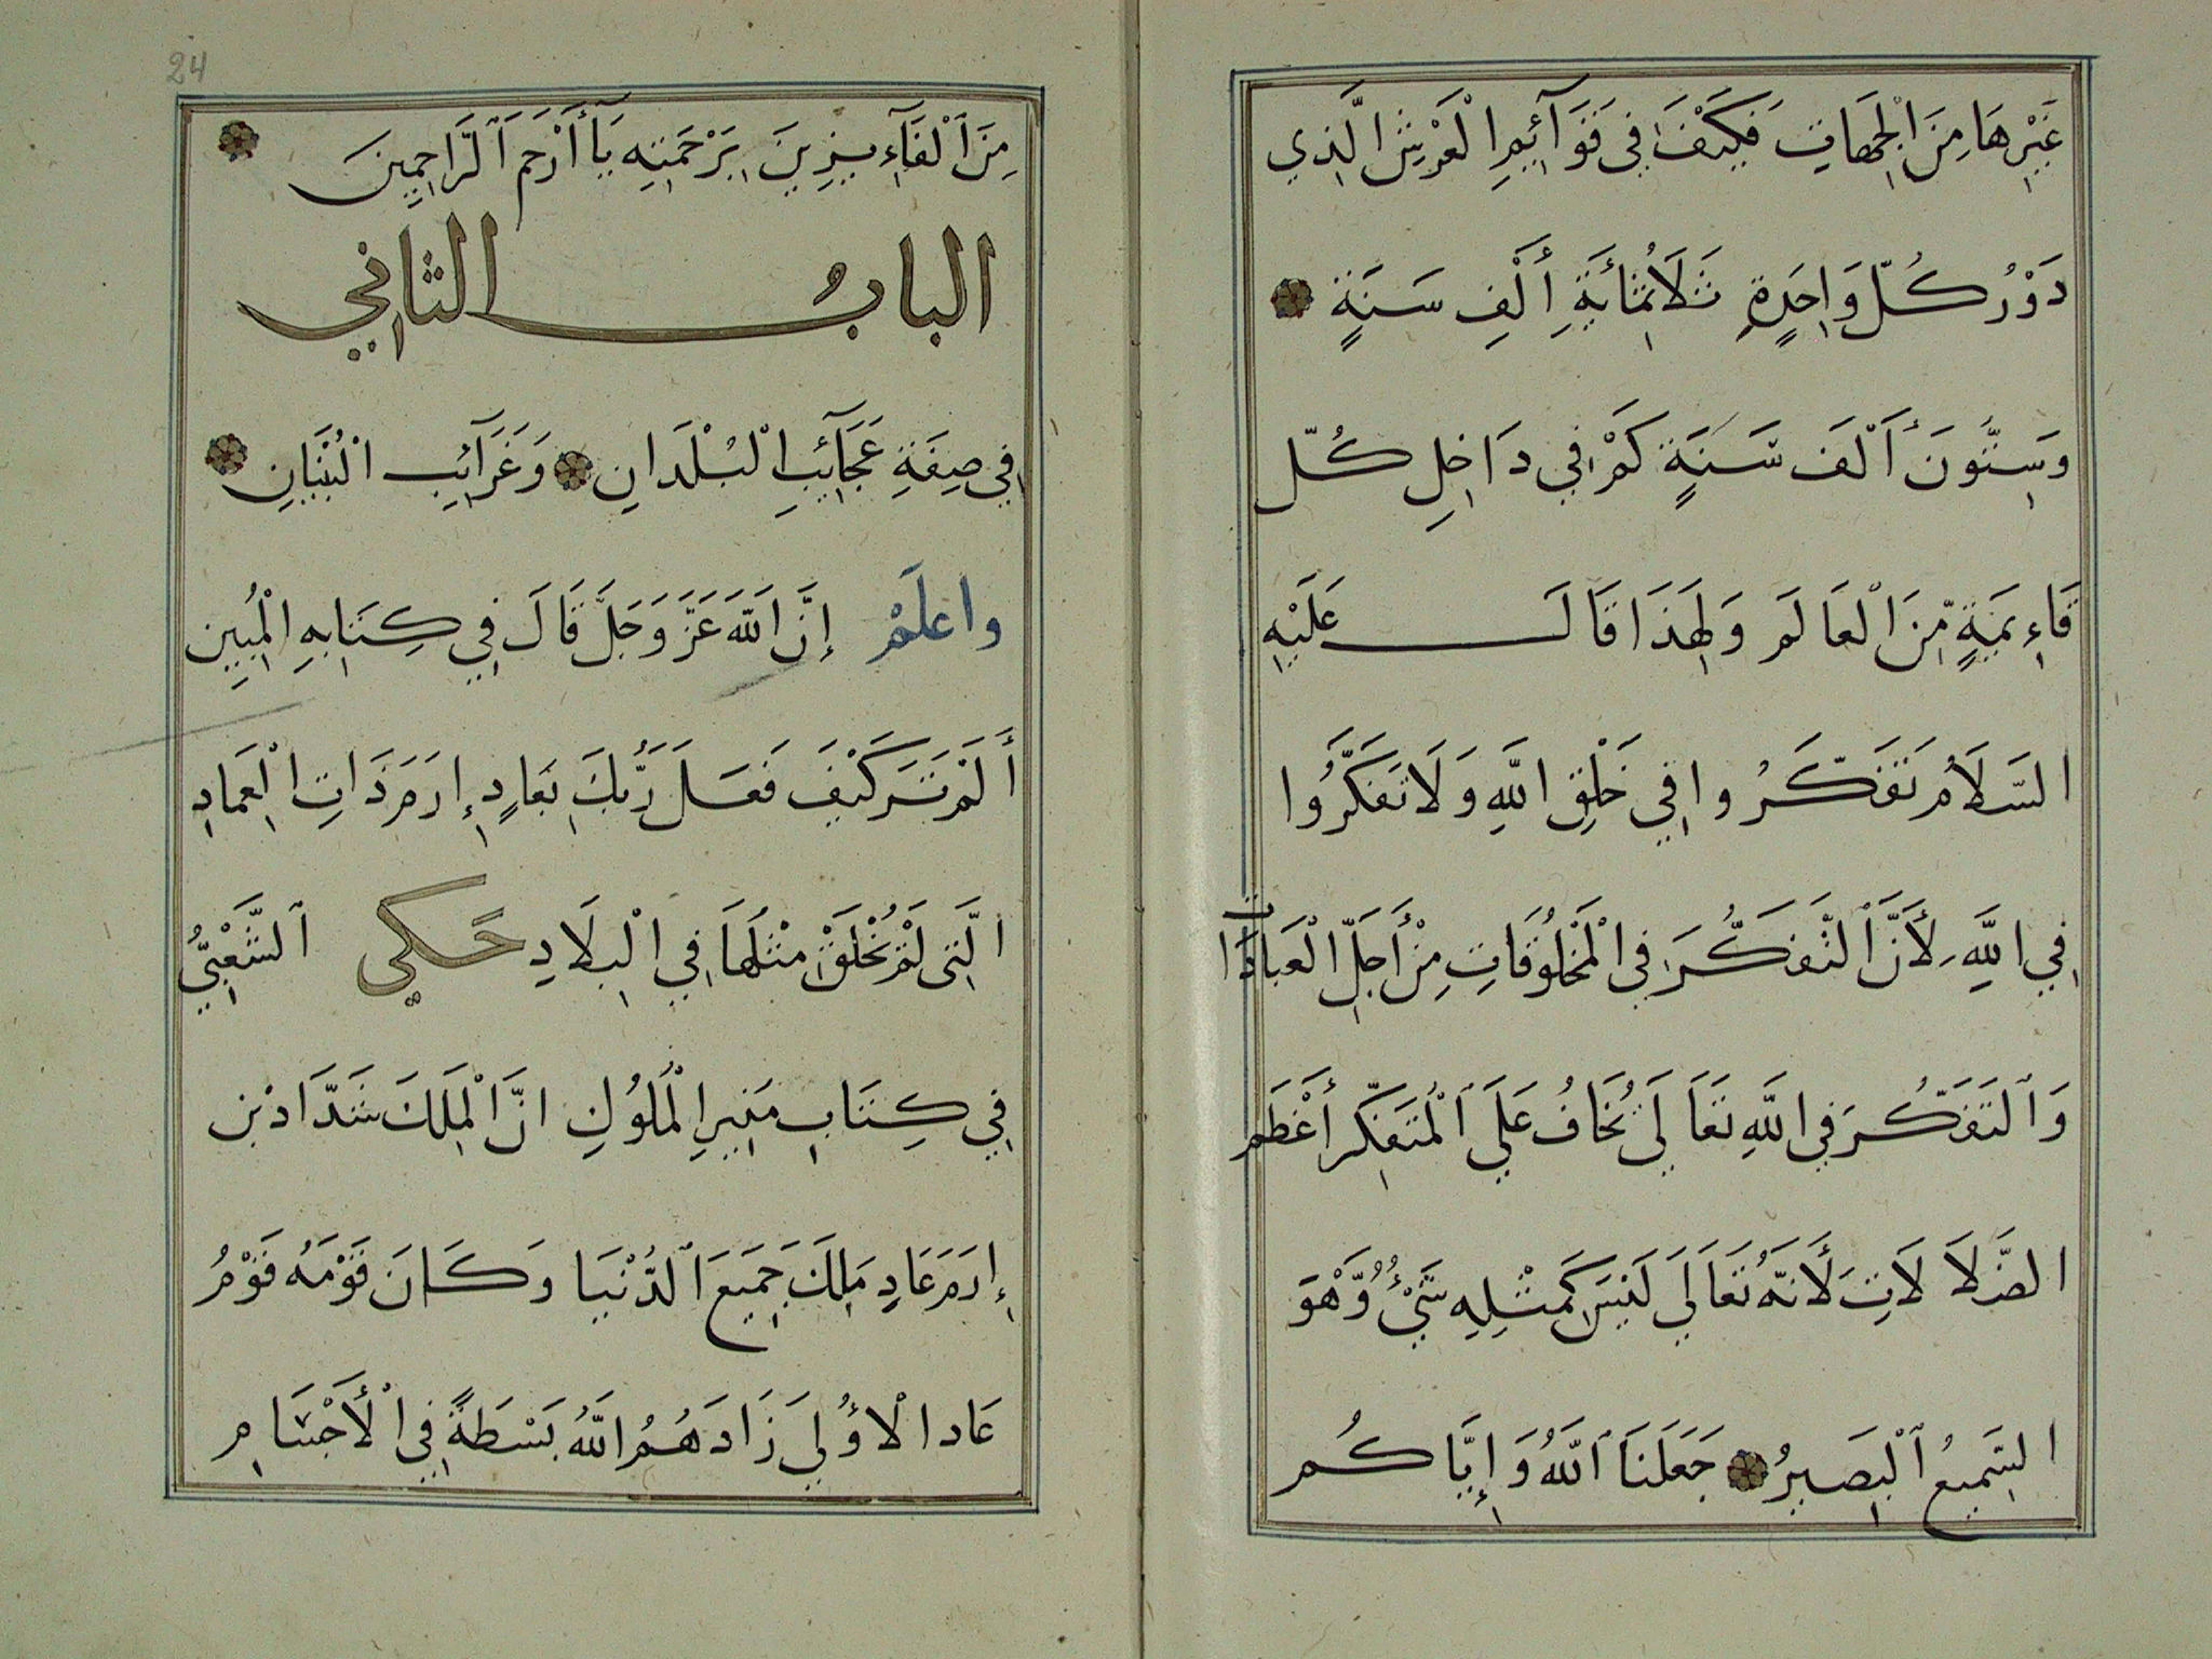 غَيْرِهَا مِنَ الْجِهَاتِ فَكَيْفَ فِي قَوَآئِمِ الْعَرْشِ الَّذِي
دَوْرُ كُلِّ وَاحِدَةٍ ثَلَاثُمِائَةِ أَلْفِ سَنَةٍ
وَسِتُّونَ أَلْفَ سَنَةٍ كَمْ فِي دَاخِلِ كُلِّ
قَاءِيمَةٍ مِّنَ الْعَالَمِ وَلِهَذَا قَالَ عَلَيْهِ
السَّلَامُ تَفَكَّرُوا فِي خَلْقِ اللَّهِ وَلَا تَفَكَّرُوا
فِي اللَّهِ لِأَنَّ ٱلتَّفَكُّرَ فِي الْمَخْلُوقَاتِ مِنْ أَجَلِّ الْعَبَادَات
وَٱلتَفَكُّرَ فِي اللَّهِ تَعَالَى يُخَافُ عَلَى ٱلْمُتَفَكِّر أَعْظَم
الضَّلَالَاتِ لَأَنَّهُ تَعَالَى لَيْسَ كَمِثْلِهِ شَيْءٌ وَّهْوَ
السَّمِيعُ ٱلْبَصِيرُ جَعَلَنَا ٱللَّهُ وَإِيَّاكُم
24
مِنَ ٱلْفَآءِيزِينَ بِرَحْمَتِهِ يَآ أَرْحَمَ ٱلرَّاحِمِينَ
البابُ الثاني
فِي صِفَةِ عَجَآئِبِ الْبُلْدَانِ وَغَرَآئِبِ الْبُنْيَانِ
واعلَمْ إِنَّ اللَّهَ عَزَّ وَجَلَّ قَالَ فِي كِتَابِهِ الْمُبِينِ
أَلَمْ تَرَ كَيْفَ فَعَلَ رَبُّكَ بِعَادٍ إِرَمَ ذَاتِ الْعِمَادِ
الَّتِي لَمْ يُخْلَقْ مِثْلُهَا فِي الْبِلَادِ حَكي ٱلشَّعْبِيُّ
فِي كِتَابِ سِيَرِ الْمُلُوكِ انَّ الْمَلِكَ شَدَّادْ بْن
إِرَمَ عَادٍ مَلِكَ جَمِيعَ ٱلدُّنْيَا وَكَانَ قَوْمَهُ قَوْمُ
عَاد الْاُولَى زَادَهُمُ اللَّهُ بَسْطَةً فِي الْأَجْسَامِ